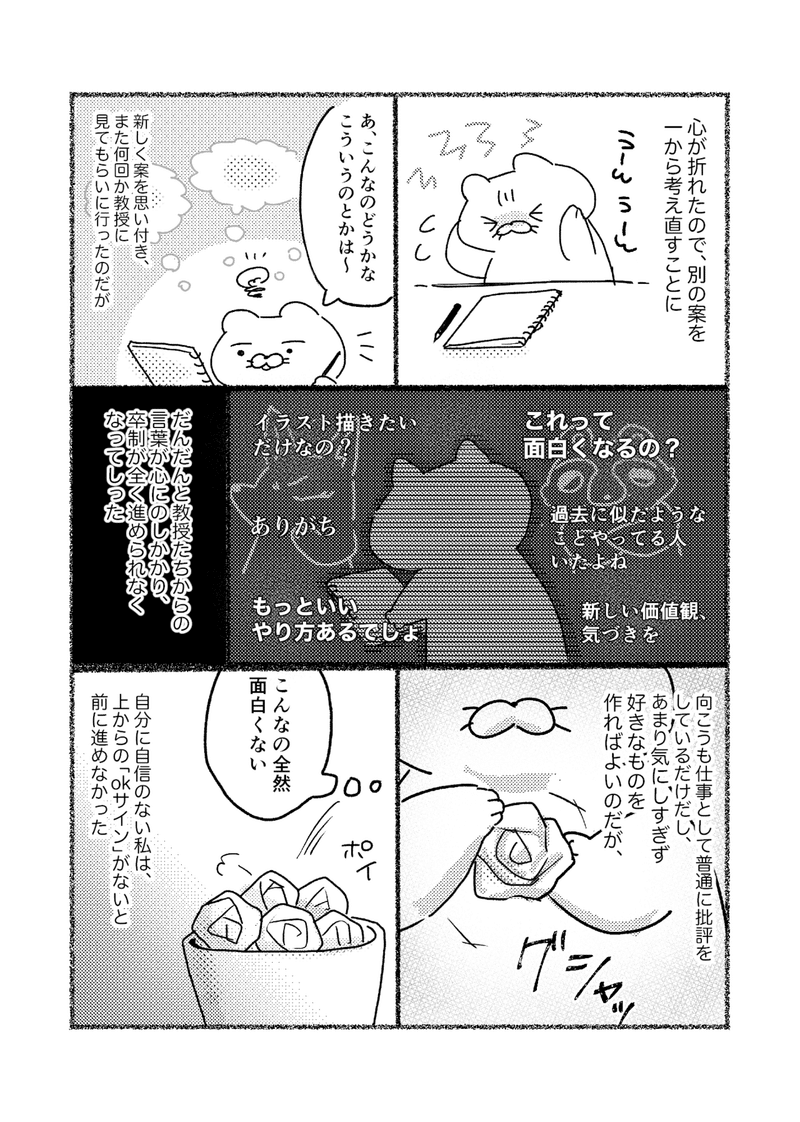 心が折れたので、別の案を
一から考え直すことに
うーん
うーん
あ、こんなのどうかな
こういうのとかは〜
新しく案を思い付き、
また何回か教授に
見てもらいに行ったのだが
これって
面白くなるの？
過去に似たような
ことやってる人
いたよね
新しい価値観、
気づきを
イラスト描きたい
だけなの？
ありがち
もっといい
やり方あるでしょ
だんだんと教授たちからの
言葉が心にのしかかり、
卒制が全く進められなく
なってしった
向こうも仕事として普通に批評を
しているだけだし、
あまり気にしすぎず
好きなものを
作ればよいのだが、
グシャッ
こんなの全然
面白くない
ポイ
自分に自信のない私は、
上からの「okサイン」がないと
前に進めなかった